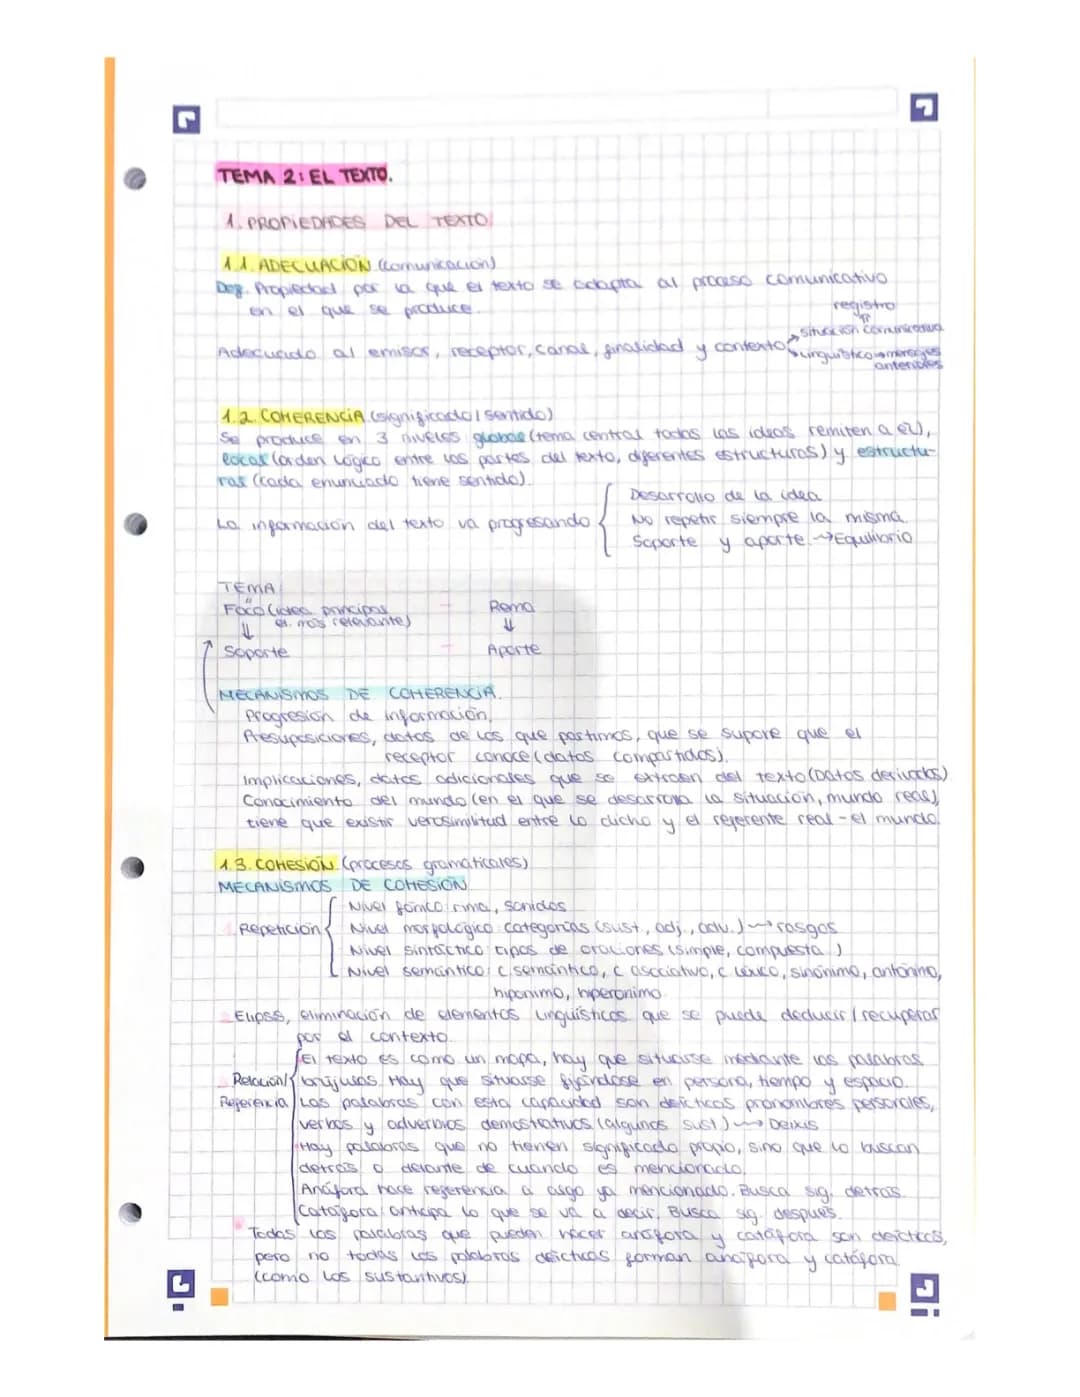 TEMA 2: EL TEXTO.
1. PROPIEDADES DEL TEXTO
1.1. ADECUACIÓN (comunicación)
Def. Propiedad por la que el texto se adapta al proceso comunicativo
en el que se produce.
registro
⇈
Adecuado al emisor, receptor, canal, finalidad y contexto → situación comunicativa
→ lingüístico → mensajes
anteriores
1.2. COHERENCIA (significado / sentido)
Se produce en 3 niveles global (tema central todas las ideas remiten a él),
local (orden lógico entre las partes del texto, diferentes estructuras) y estructu-
ras (cada enunciado tiene sentido).
La información del texto va progresando { Desarrollo de la idea
No repetir siempre la misma
Soporte y aporte. → Equilibrio
TEMA
Foco (idea principal - Rema
el. más relevante) ⇓
⇓
Soporte - Aporte
MECANISMOS DE COHERENCIA.
Progresión de información.
Presuposiciones, datos de los que partimos, que se supone que el
receptor conoce (datos compartidos).
Implicaciones, datos adicionales que se extraen del texto (Datos derivados)
Conocimiento del mundo (en el que se desarrolla la situación, mundo real)
tiene que existir verosimilitud entre lo dicho y el referente real - el mundo.
1.3. COHESIÓN (procesos gramaticales)
MECANISMOS DE COHESIÓN
Nivel fónico: rima, sonidos
Repetición { Nivel morfológico: categorías (sust., adj., adv.) → rasgos
Nivel sintáctico: tipos de oraciones (simple, compuesta..)
Nivel semántico: c. semántico, c. asociativo, c. léxico, sinónimo, antónimo,
hipónimo, hiperónimo.
Elipsis, eliminación de elementos lingüísticos que se puede deducir / recuperar
por el contexto.
El texto es como un mapa, hay que situarse mediante las palabras
Relación/ { brújulas. Hay que situarse fijándose en persona, tiempo y espacio.
Referencia Las palabras con esta capacidad son deícticos pronombres personales,
verbos y adverbios demostrativos (algunos sust) → Deixis
Hay palabras que no tienen significado propio, sino que lo buscan
detrás o delante de cuando es mencionado.
Anáfora hace referencia a algo ya mencionado. Busca sig. detrás.
Catáfora: anticipa lo que se va a decir. Busca sig. después.
Todas las palabras que pueden hacer anáfora y catáfora son deícticos,
pero no todas las palabras deícticas forman anáfora y catáfora.
(como los sustantivos).